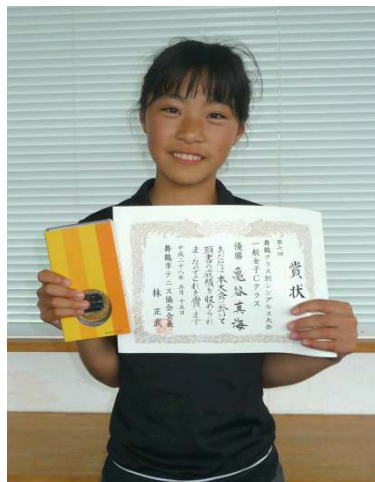 賞状
第七回
舞鶴クラス別シングルス大会
一般女子Cクラス
優勝 亀谷真海
あなたは本大会において
頭書の成績を収められ
ましたのでこれを賞します
平成二十八年五月十五日
舞鶴市テニス協会会長
林正武